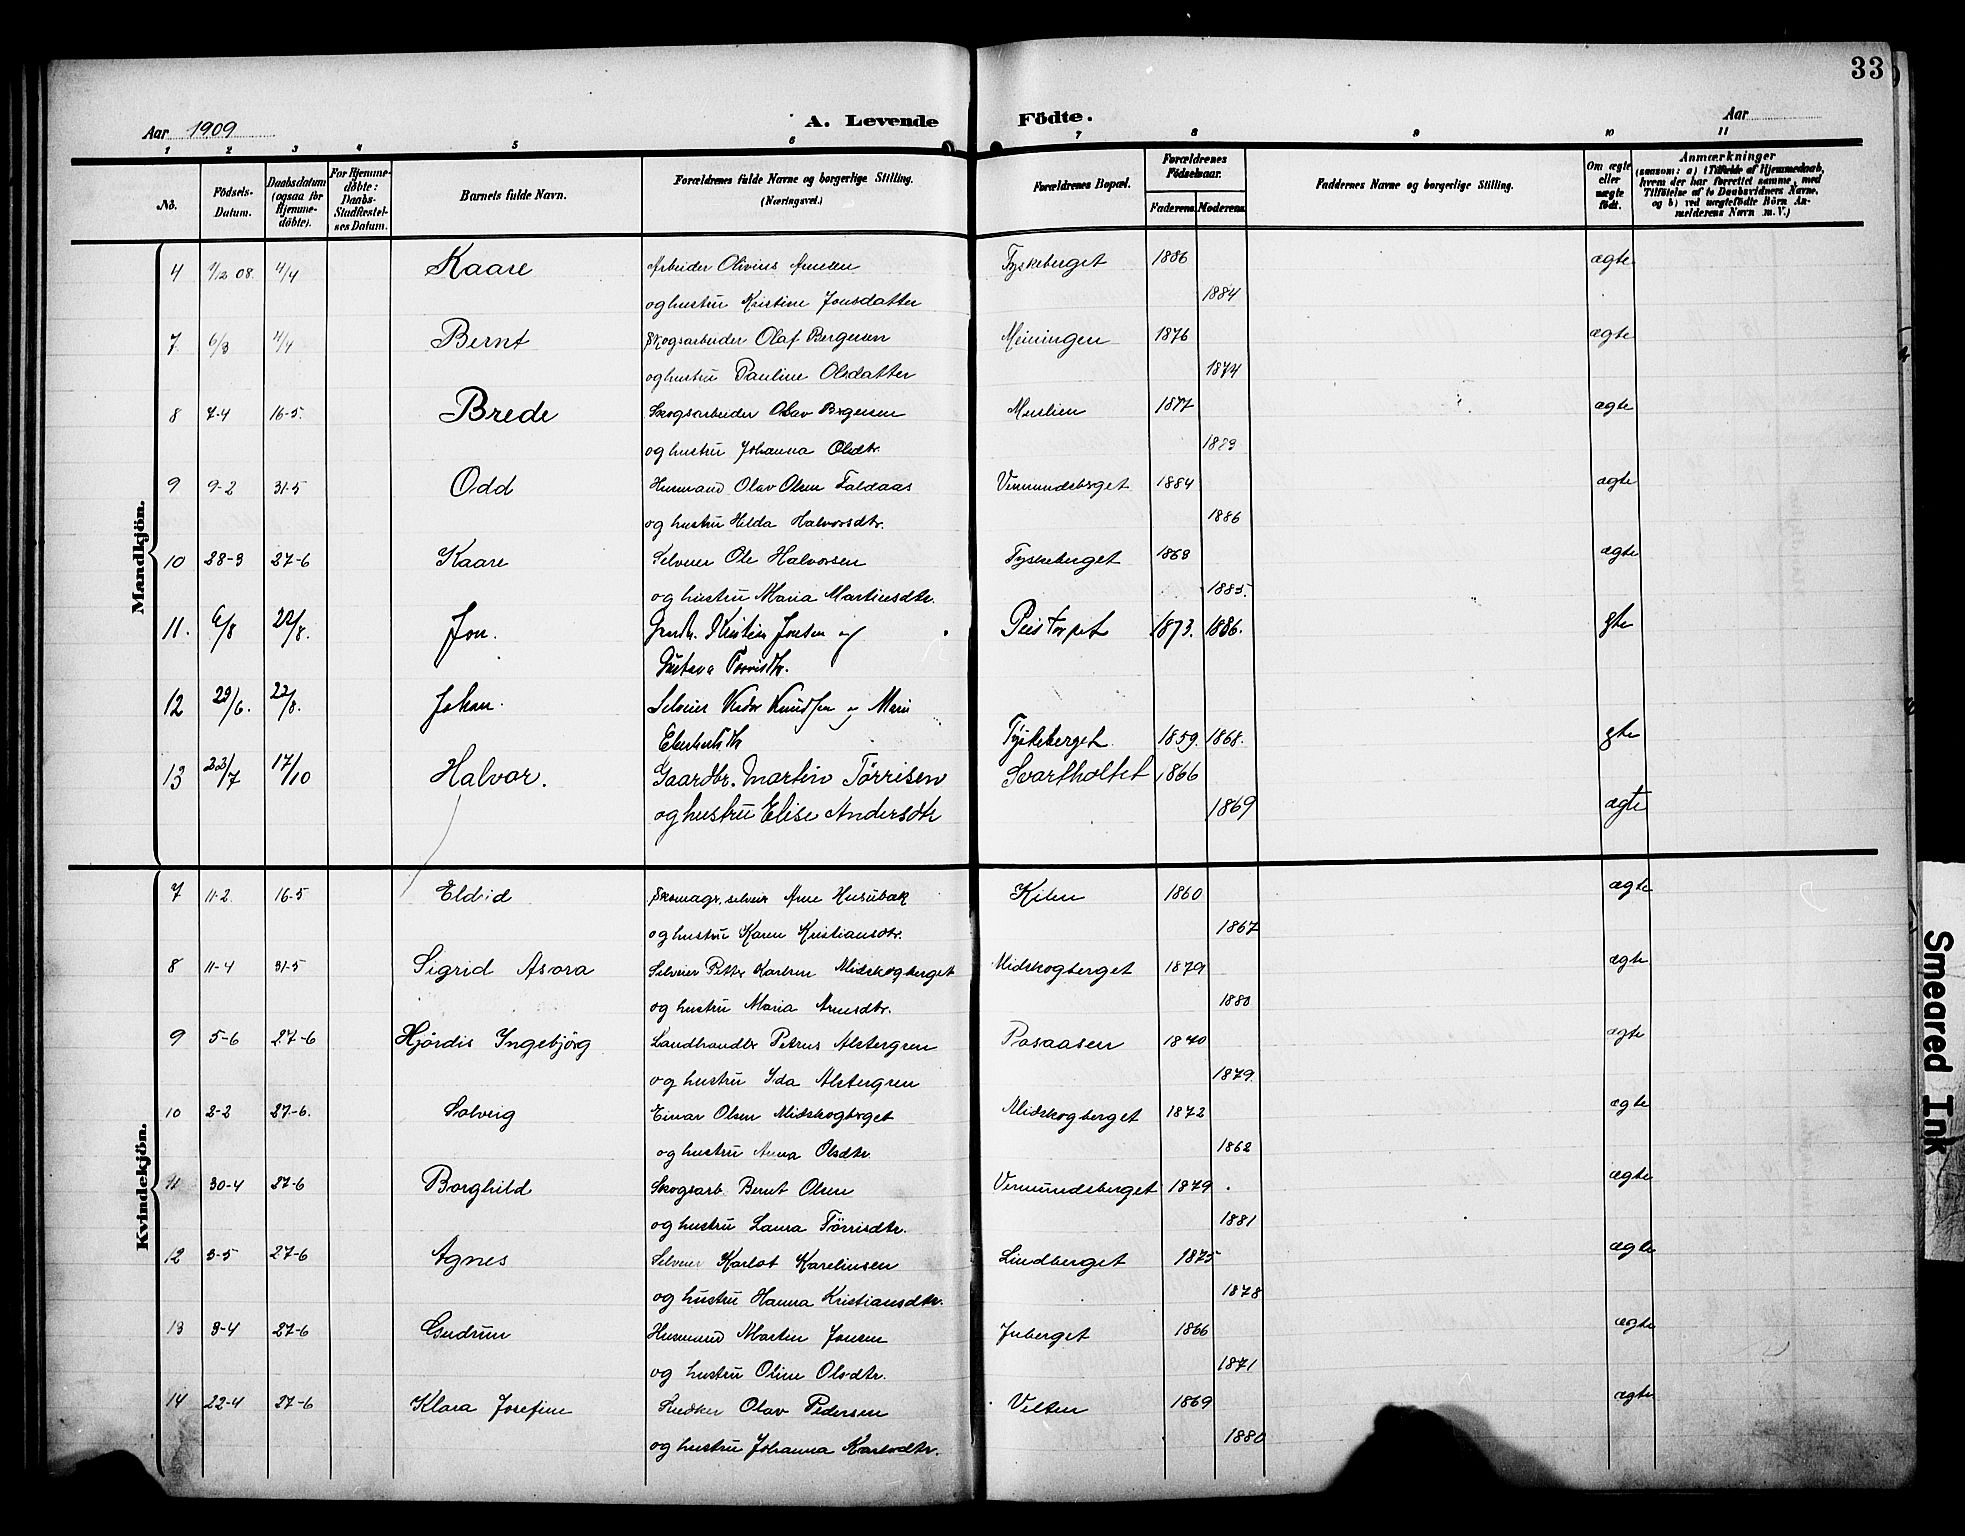 33
Aar 1909 A. Levende Födte. Aar
1 2 3 4 5 6 7 8 9 10 11
No. Födsels-Datum. Daabsdatum (ogsaa for Hjemmedöbte). For Hjemmedöbte: Daabs-Stadfæstelses Datum. Barnets fulde Navn. Forældrenes fulde Navne og borgerlige Stilling. (Næringsvei.) Forældrenes Bopæl. Forældrenes Födselsaar. Faderens. Moderens. Faddernes Navne og borgerlige Stilling. Om ægte eller uægte födt. Anmærkninger (saasom: a) i Tilfælde af Hjemmedaab, hvem der har forrettet samme, med Tilföielse af to Daabsvidners Navne, og b) ved uægtefödte Börn Anmelderens Navn m. V.)
Mandkjön.
4 7/12 08. 11/4 Kaare Arbeider Olivius Arnesen Tyskeberget 1886 ægte
og hustru Kristine Jonsdatter 1884
7 6/3 11/4 Bernt Skogsarbeider Olaf Bergersen Meiningen 1876 ægte
og hustru Pauline Olsdatter 1874
8 7-4 16-5. Brede Skogsarbeider Olav Brgersen 1877 ægte
og hustru Johanna Olsdtr.
9 9-2 31-5 Odd Husmand Olav Olsen Faldaas Vermundsberget 1884 ægte
og hustru Helda Halvorsdtr. 1886
10 28-3 27-6 Kaare Selveier Ole Halvorsen Tyskeberget 1868 ægte
og hustru Maria Martinsdtr. 1885.
11. 6/8 22/8. Jon. Kristian Jonsen og Peistorpet 1873. 1886. gte
Gustava Törrisdtr.
12 29/6. 22/8. Johan. Selveier Knudsen og Mari
Tyskeberget 1859. 1868. gte
13 22/7 17/10 Halvor. Gaardbr. Martin Tørrisen Svartholtet 1866
og hustru Elise Andersdtr 1869 ægte
Kvindekjön.
7 11-2 16-5 Eldid Skomagr. selveir Arne Husubæk Kilen 1860 ægte
og hustru Karen Kristiansdtr. 1867
8 11-4 31-5 Sigrid Asora Selveier Petter Karlsen Midskogberget Midskogberget 1879 ægte
og hustru Maria Arnesdtr. 1880
9 5-6 27-6 Hjørdis Ingebjørg Landhandler Petrus Alstergren Posaasen 1840 ægte
og hustru Ida Alstergren 1879.
10 2-2 27-6. Solveig Einar Olsen Midskogberget Midskogberget 1872 ægte
og hustru Anna Olsdtr 1862
11 30-4 27-6 Borghild Skogsarb. Bernt Olsen Vermundsberget 1879 ægte
og hustru Laura Tørrisdtr. 1881
12 3-5 27-6 Agnes Selveier Karlot Karelinsen Lindberget 1875 ægte
og hustru Hanna Kristiansdtr. 1878
13 3-4 27-6 Gudrun Husmand Martin Jonsen Juberget 1866 ægte
og hustru Oline Olsdtr. 1871
14 22-4 27-6 Klara Josefine Snedker Olav Pedersen Velten 1869 ægte
og hustru Johanna Karlsdtr. 1880
Smeared Ink